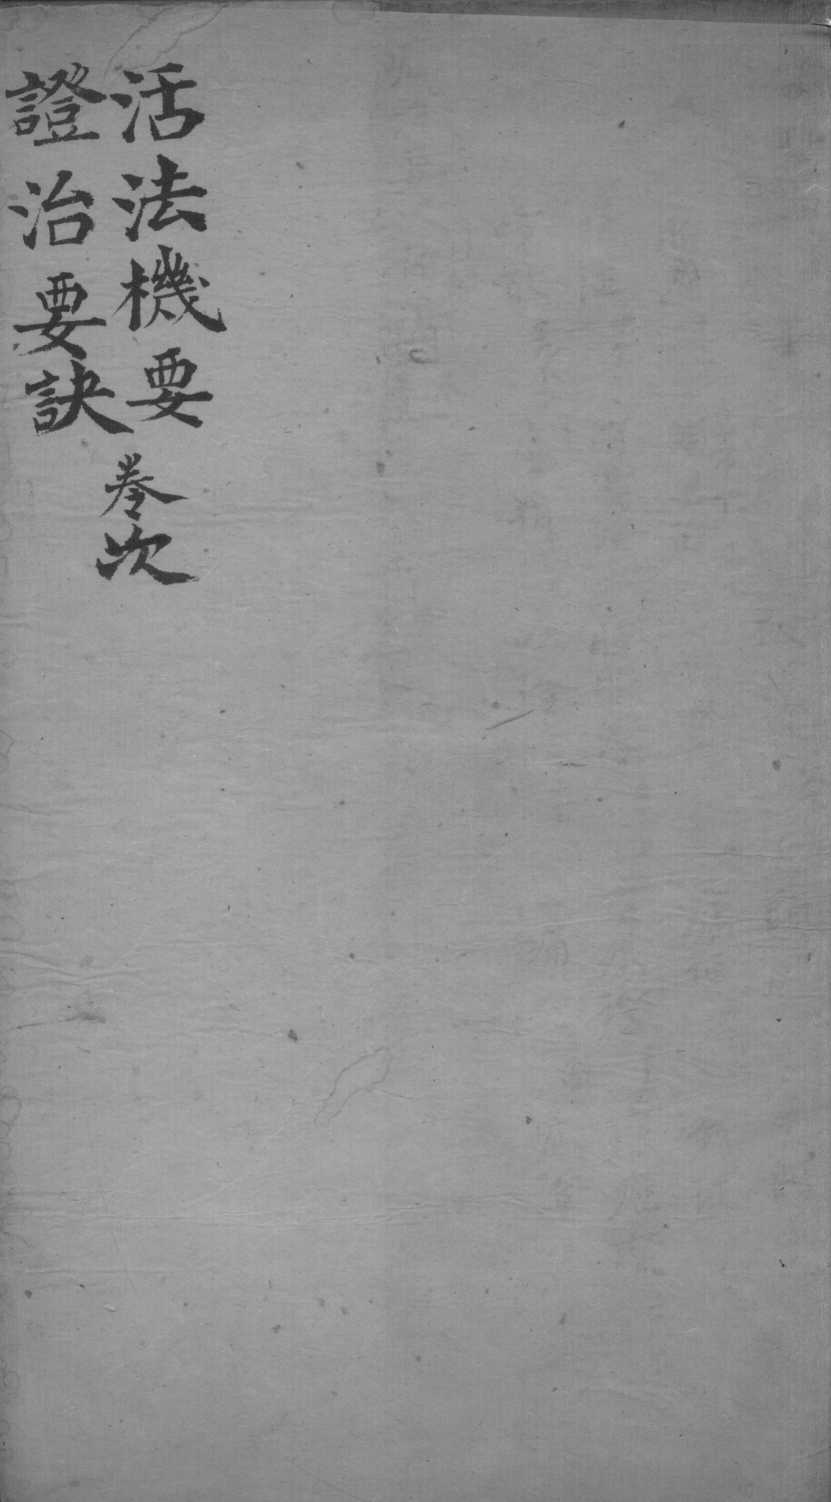 活法機要
證治要訣
卷次